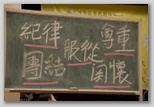 紀律 服從 尊重
團結 關懷